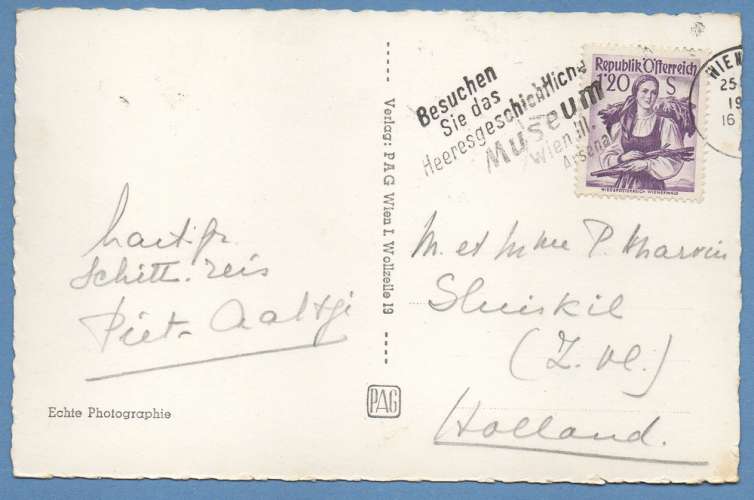 Besuchen
Sie das
Heeresgeschichtliche
Museum
Wien III.
Arsenal
Republik Österreich
1'20 S
NIEDERÖSTERREICH WIENERWALD
WIEN
25
19
16
Verlag: PAG Wien I, Wollzeile 19
Schitt. reis
Piet - Aaltje
M. et Mme P. Marvin
Sluiskil
(Z. Vl.)
Holland.
Echte Photographie
PAG